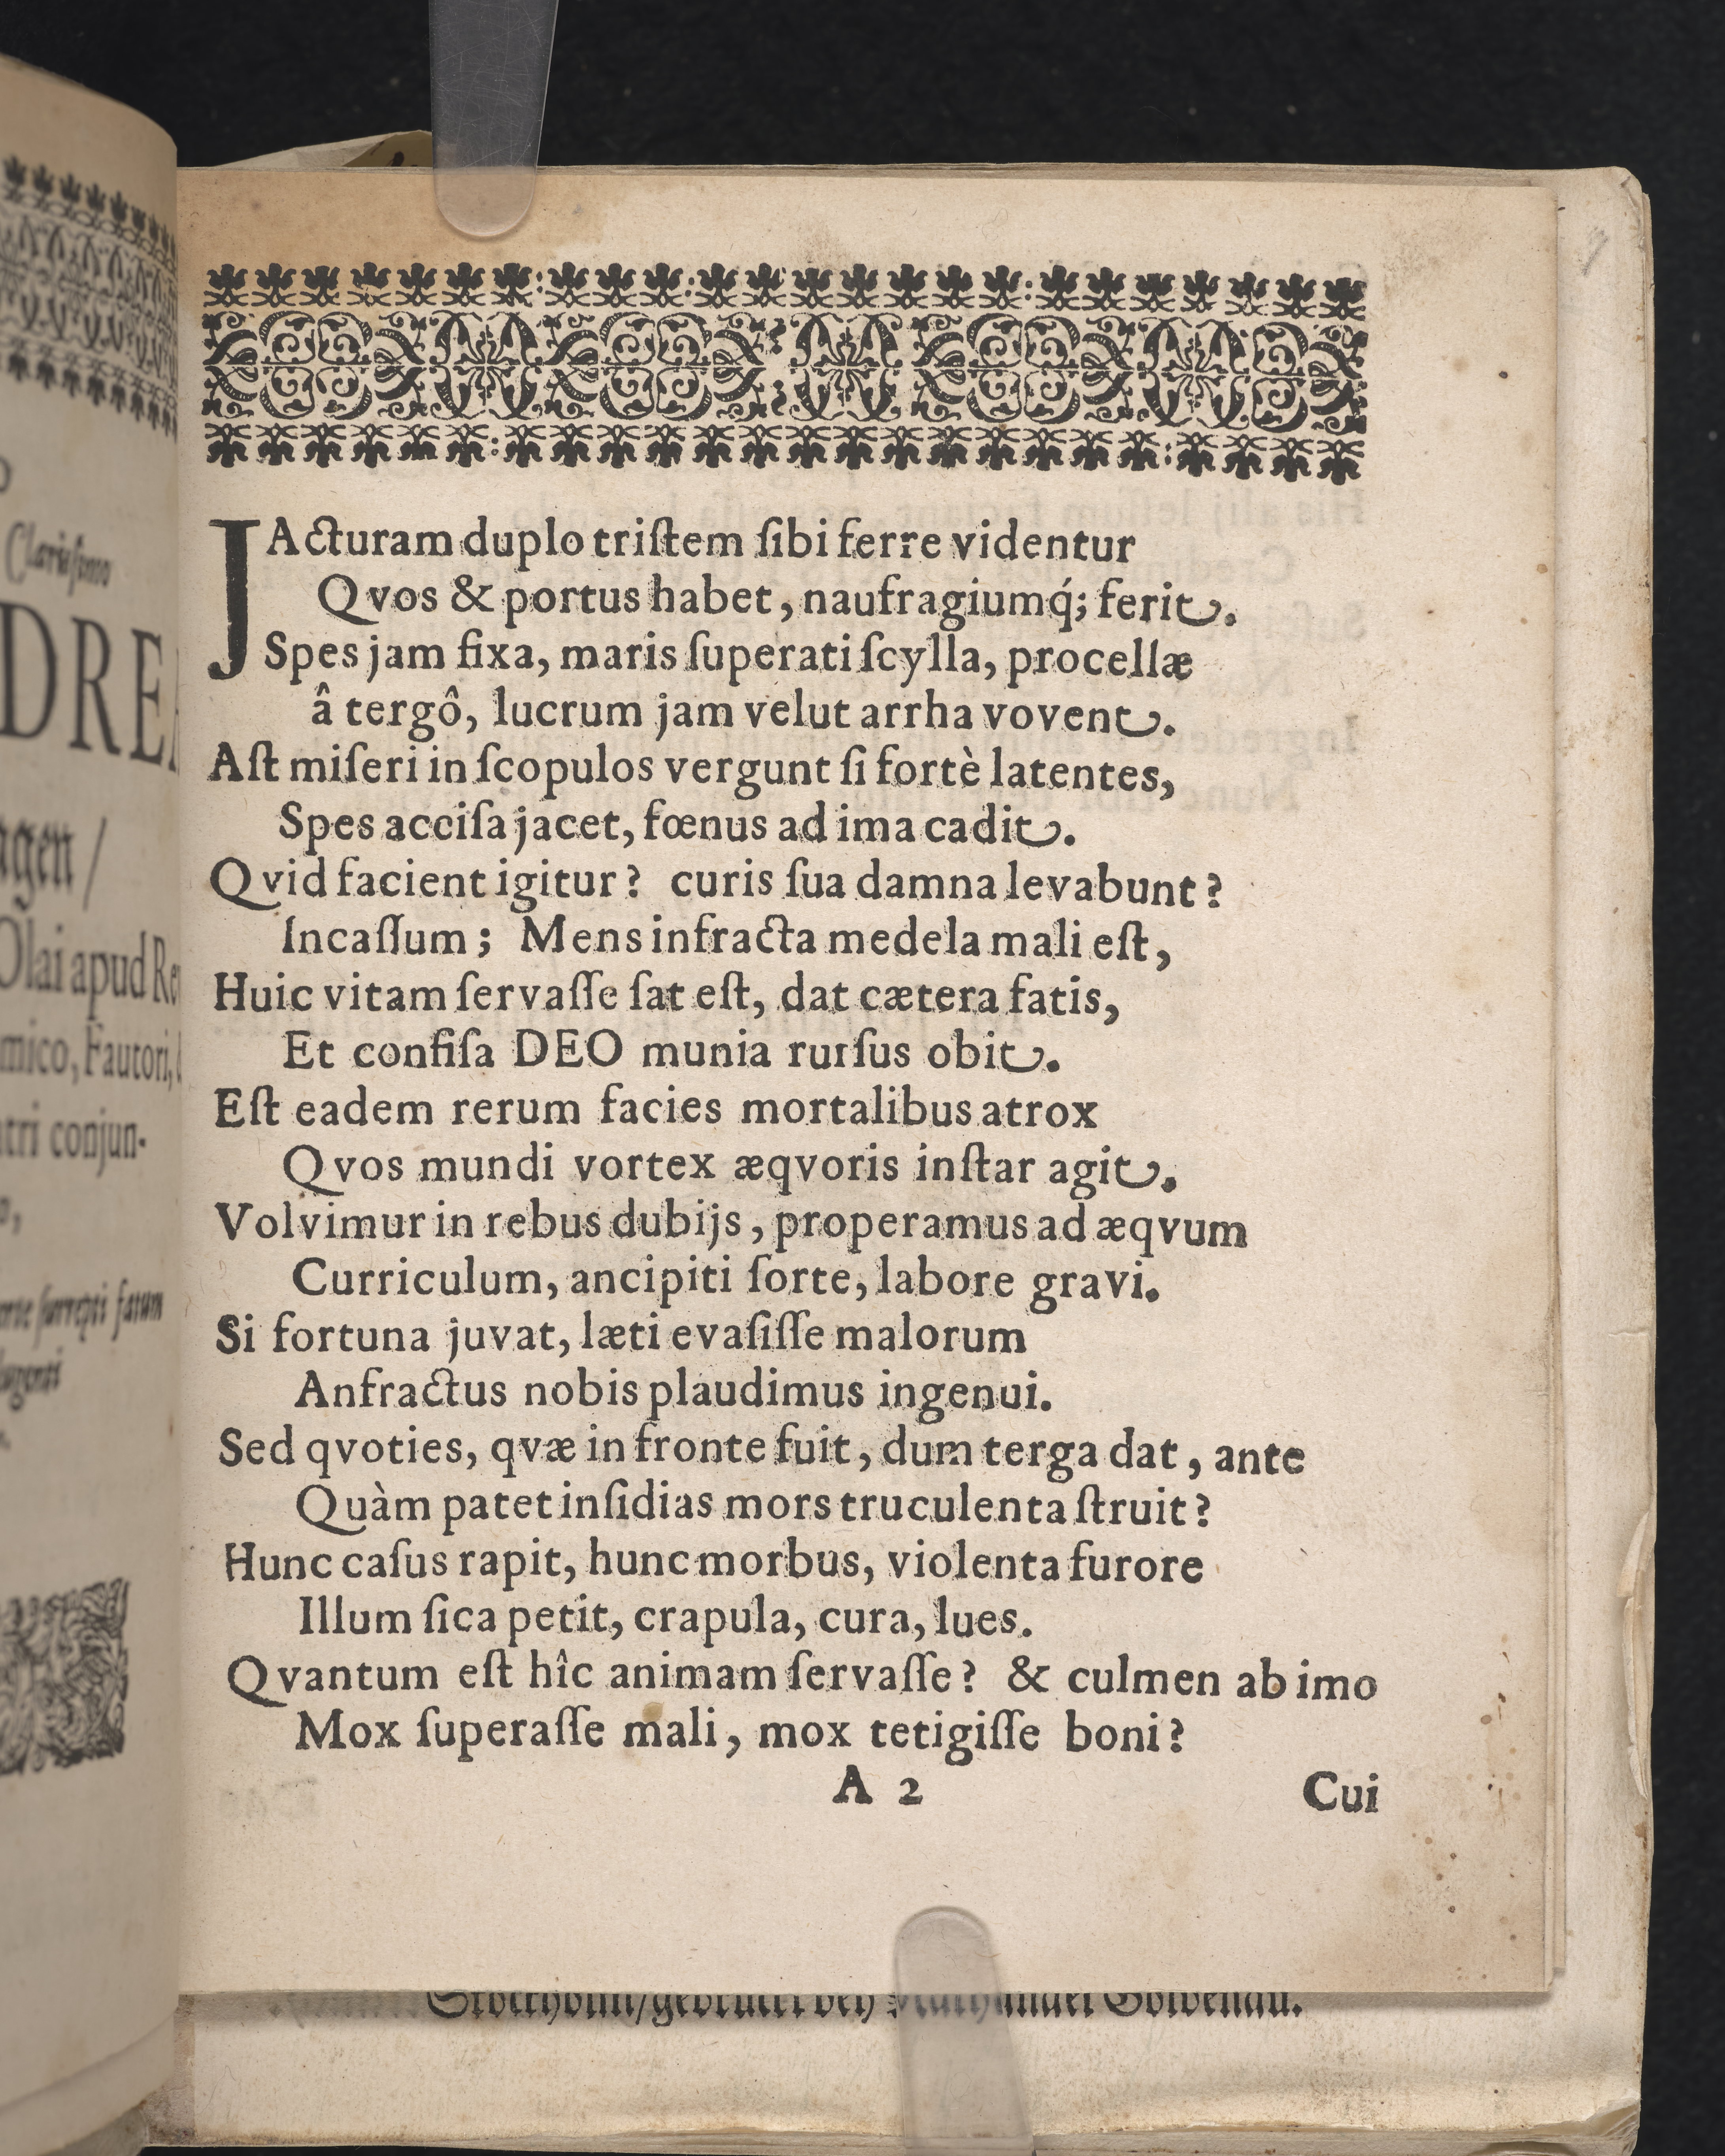 Clarissimo
DRE
agen /
Olai apud Re
mico, Fautori,
atri conjun-
surrepti fatum
JActuram duplo triſtem ſibi ferre videntur
Qvos & portus habet, naufragiumq́; ferit.
Spes jam fixa, maris ſuperati ſcylla, procellæ
â tergô, lucrum jam velut arrha vovent.
Aſt miſeri in ſcopulos vergunt ſi fortè latentes,
Spes acciſa jacet, fœnus ad ima cadit.
Qvid facient igitur? curis ſua damna levabunt?
Incaſſum; Mens infracta medela mali eſt,
Huic vitam ſervaſſe ſat eſt, dat cætera fatis,
Et confiſa DEO munia rurſus obit.
Eſt eadem rerum facies mortalibus atrox
Qvos mundi vortex æqvoris inſtar agit.
Volvimur in rebus dubijs, properamus ad æqvum
Curriculum, ancipiti ſorte, labore gravi.
Si fortuna juvat, læti evaſiſſe malorum
Anfractus nobis plaudimus ingenui.
Sed qvoties, qvæ in fronte fuit, dum terga dat, ante
Quàm patet inſidias mors truculenta ſtruit?
Hunc caſus rapit, hunc morbus, violenta furore
Illum ſica petit, crapula, cura, lues.
Qvantum eſt hîc animam ſervaſſe? & culmen ab imo
Mox ſuperaſſe mali, mox tetigiſſe boni?
A 2 Cui